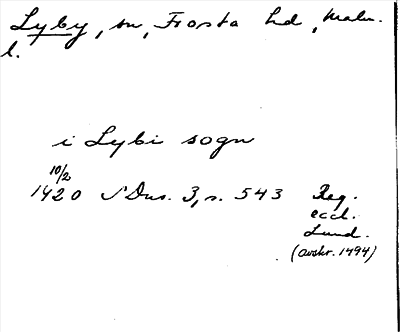 Lyby, sn, Frosta hd, Malm.
l.
i Lybi sogn
10/2
1420 NDus. 3, s. 543 Reg.
eccl.
Lund.
(avskr. 1494)